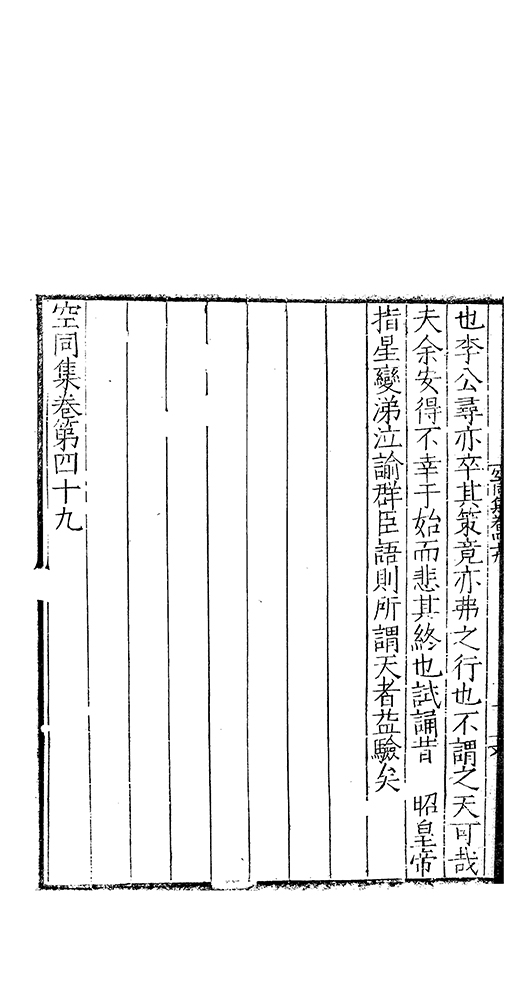 也李公尋亦卒其策竟亦弗之行也不謂之天可哉
夫余安得不幸于始而悲其終也試誦昔　昭皇帝
指星變涕泣諭群臣語則所謂天者益驗矣
空同集卷第四十九